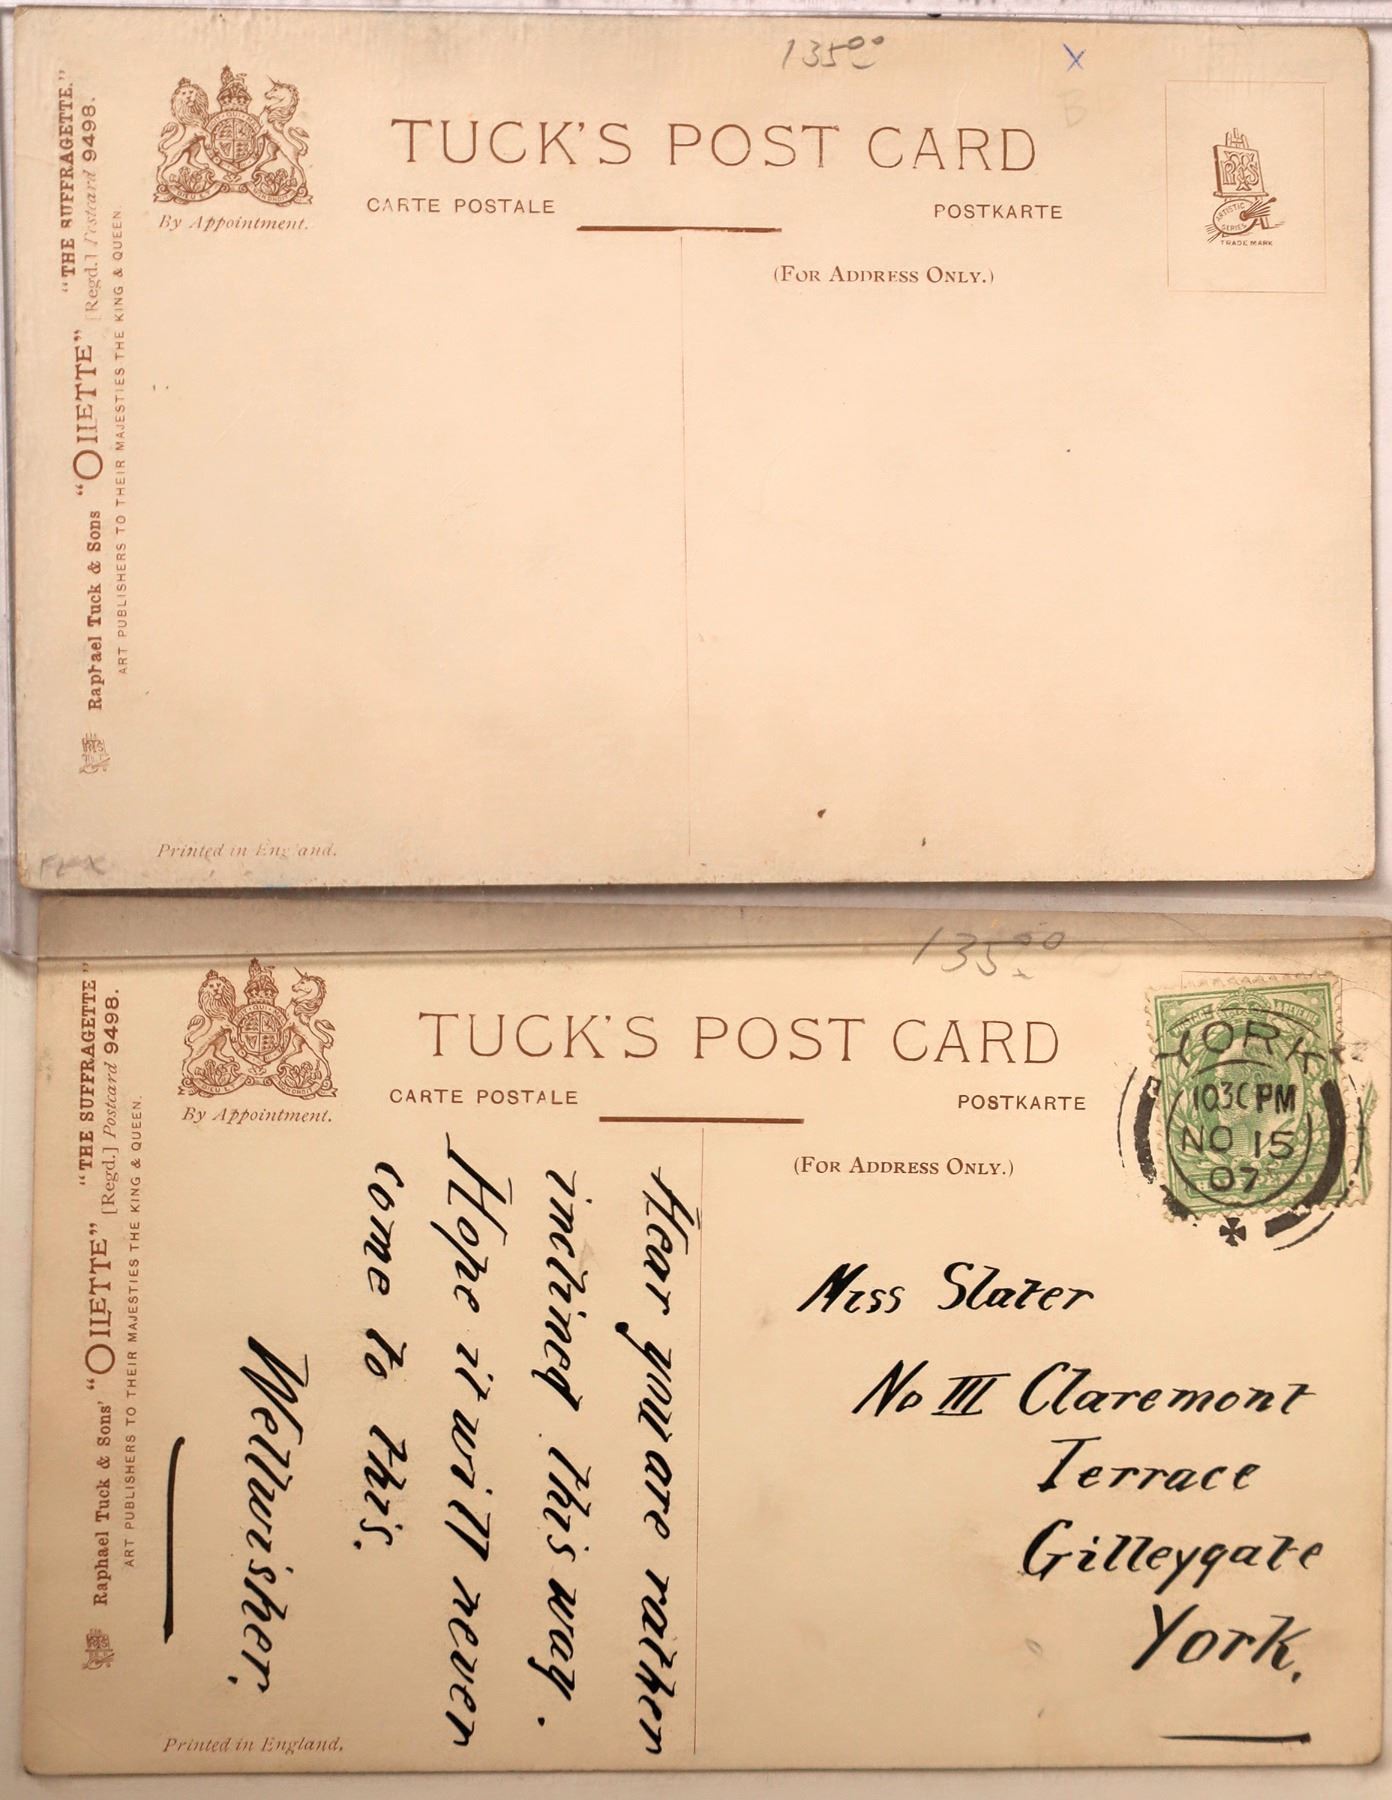 135⁰⁰
X
TUCK'S POST CARD
CARTE POSTALE
POSTKARTE
(FOR ADDRESS ONLY.)
By Appointment.
ARTISTIC SERIES
TRADE MARK
"THE SUFFRAGETTE."
Raphael Tuck & Sons "OILETTE" [Regd.] Postcard 9498.
ART PUBLISHERS TO THEIR MAJESTIES THE KING & QUEEN.
Printed in England.
135⁰⁰
TUCK'S POST CARD
CARTE POSTALE
POSTKARTE
(FOR ADDRESS ONLY.)
By Appointment.
"THE SUFFRAGETTE"
Raphael Tuck & Sons' "OILETTE" [Regd.] Postcard 9498.
ART PUBLISHERS TO THEIR MAJESTIES THE KING & QUEEN.
Printed in England.
YORK
10 30 PM
NO 15
07
Hear you are rather
inclined this way.
Hope it will never
come to this.
Wellwisher.
Miss Slater
No III Claremont
Terrace
Gilleygate
York.